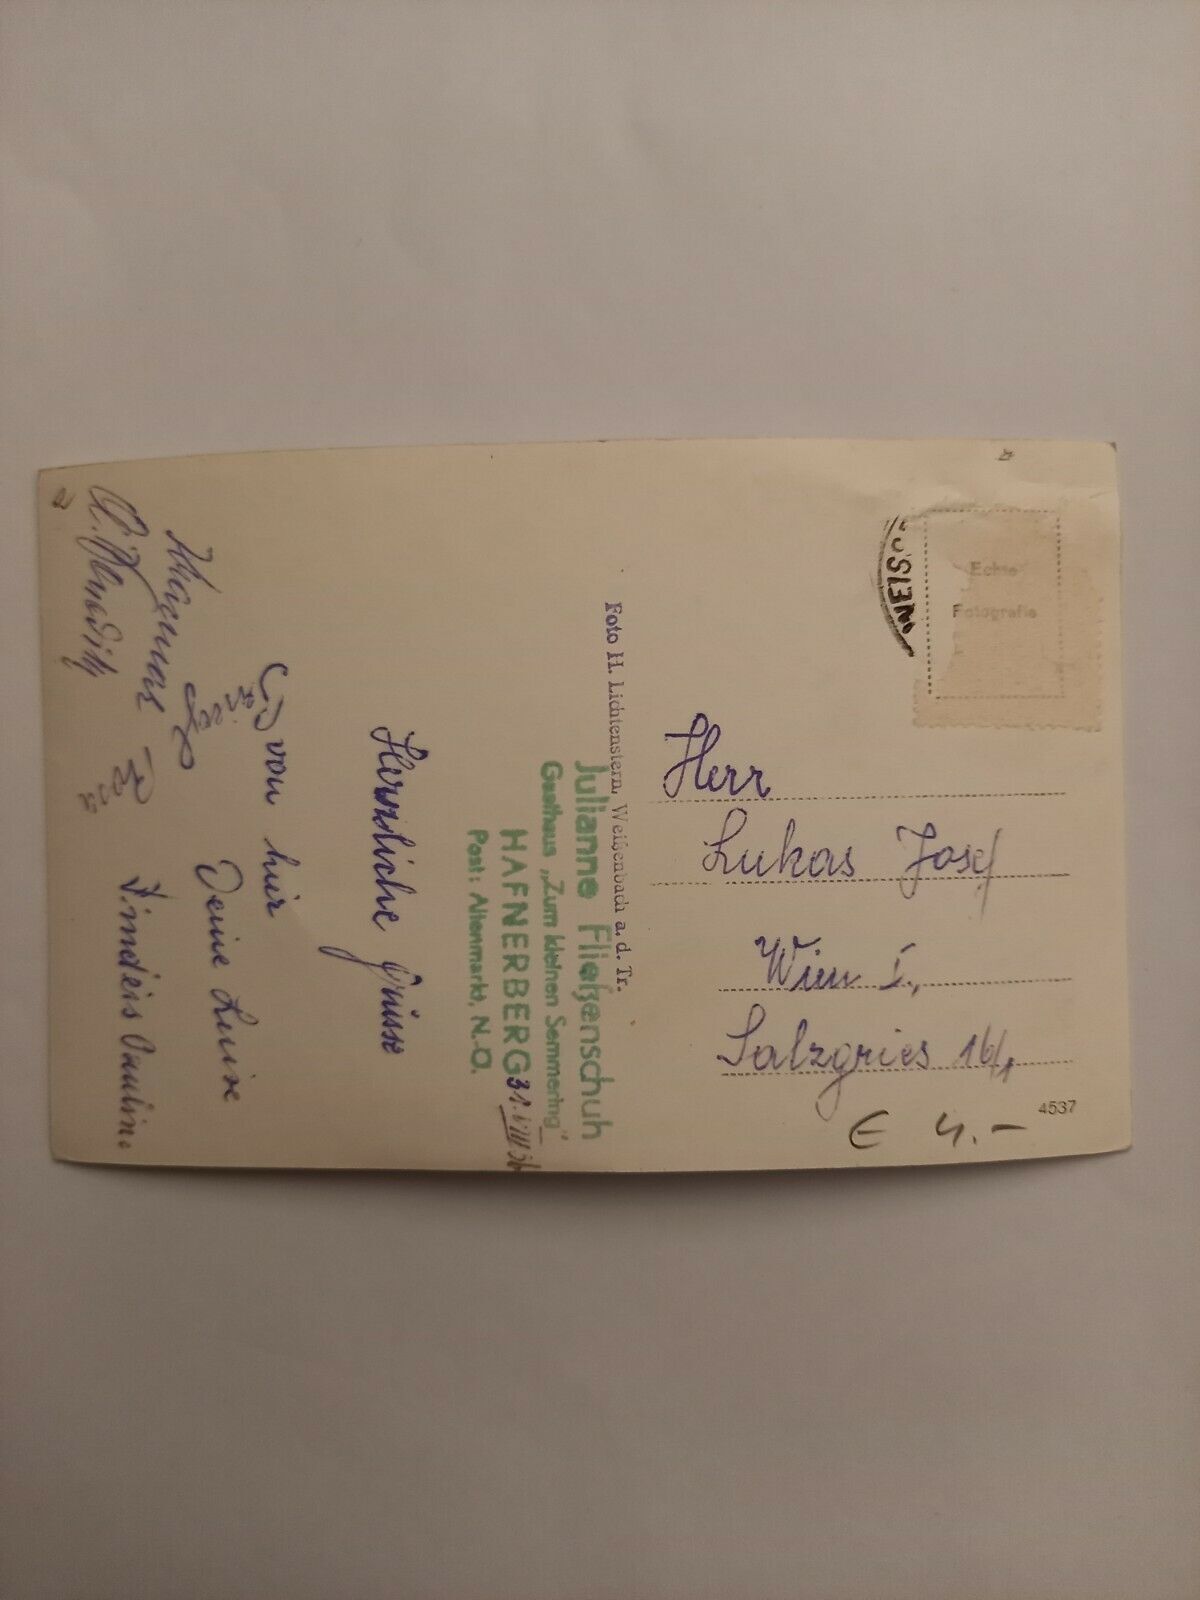 Julianne Fließenschuh
Gasthaus „Zum kleinen Semmering"
HAFNERBERG
Post: Altenmarkt, N.-Ö.
31.VIII 36
Herzliche Grüsse
von hier
Deine Luise
Paulina
Foto H. Lichtenstern, Weißenbach a. d. Tr.
Echte
Fotografie
WEISS
Herr
Lukas Josef
Wien I.,
Salzgries 16/1
4537
€ 4.-